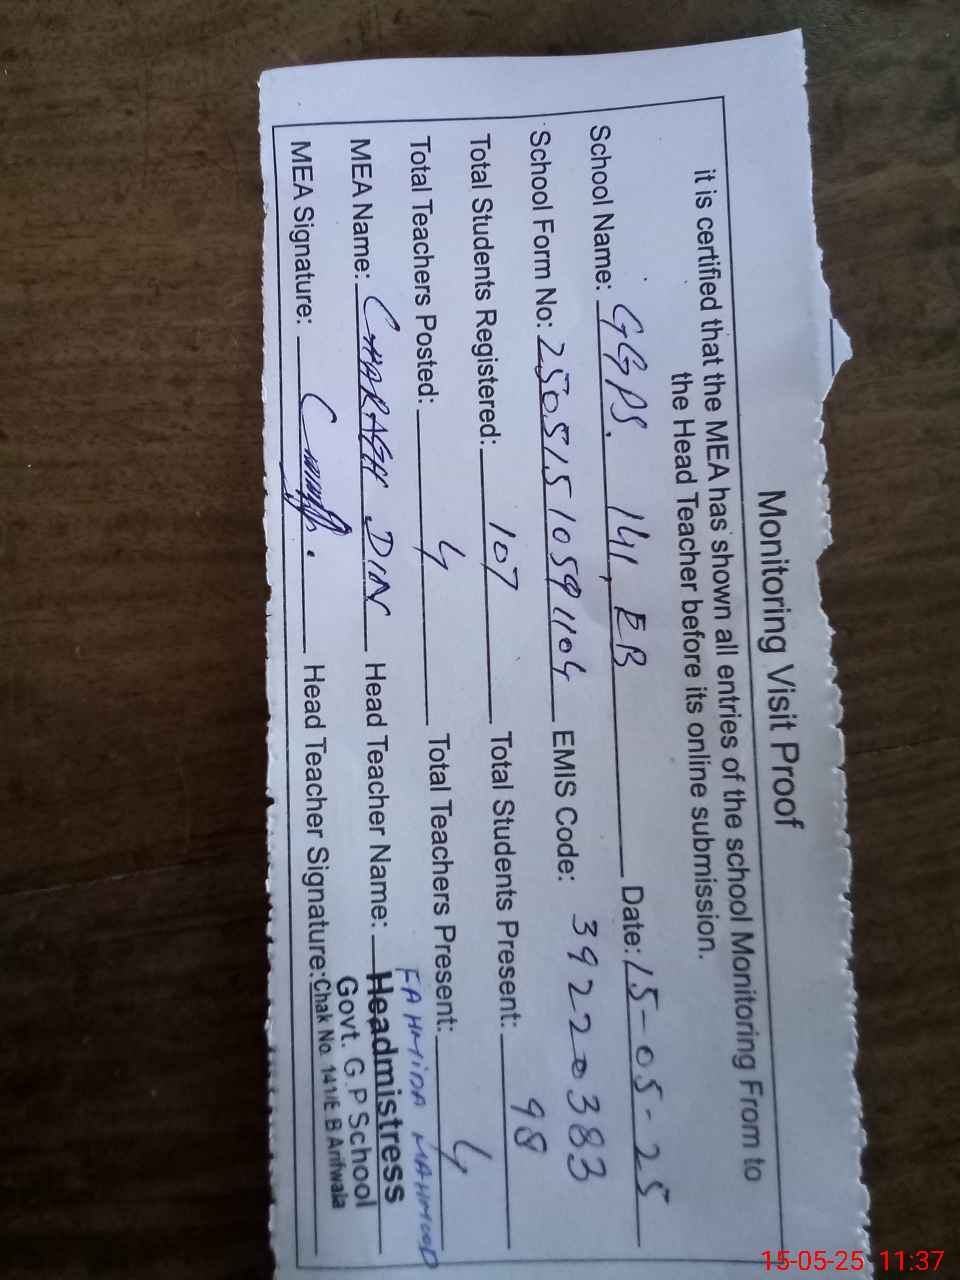 Monitoring Visit Proof
it is certified that the MEA has shown all entries of the school Monitoring From to
the Head Teacher before its online submission.
School Name: GGPS. 141 EB Date: 15-05-25
School Form No: 25051510591104 EMIS Code: 39220383
Total Students Registered: 107 Total Students Present: 98
Total Teachers Posted: 4 Total Teachers Present: 4
MEA Name: CHARAGH DIN Head Teacher Name: FAHMIDA MAHMOOD
MEA Signature: Head Teacher Signature:
Headmistress
Govt. G.P School
Chak No. 141/E B Arifwala
15-05-25 11:37